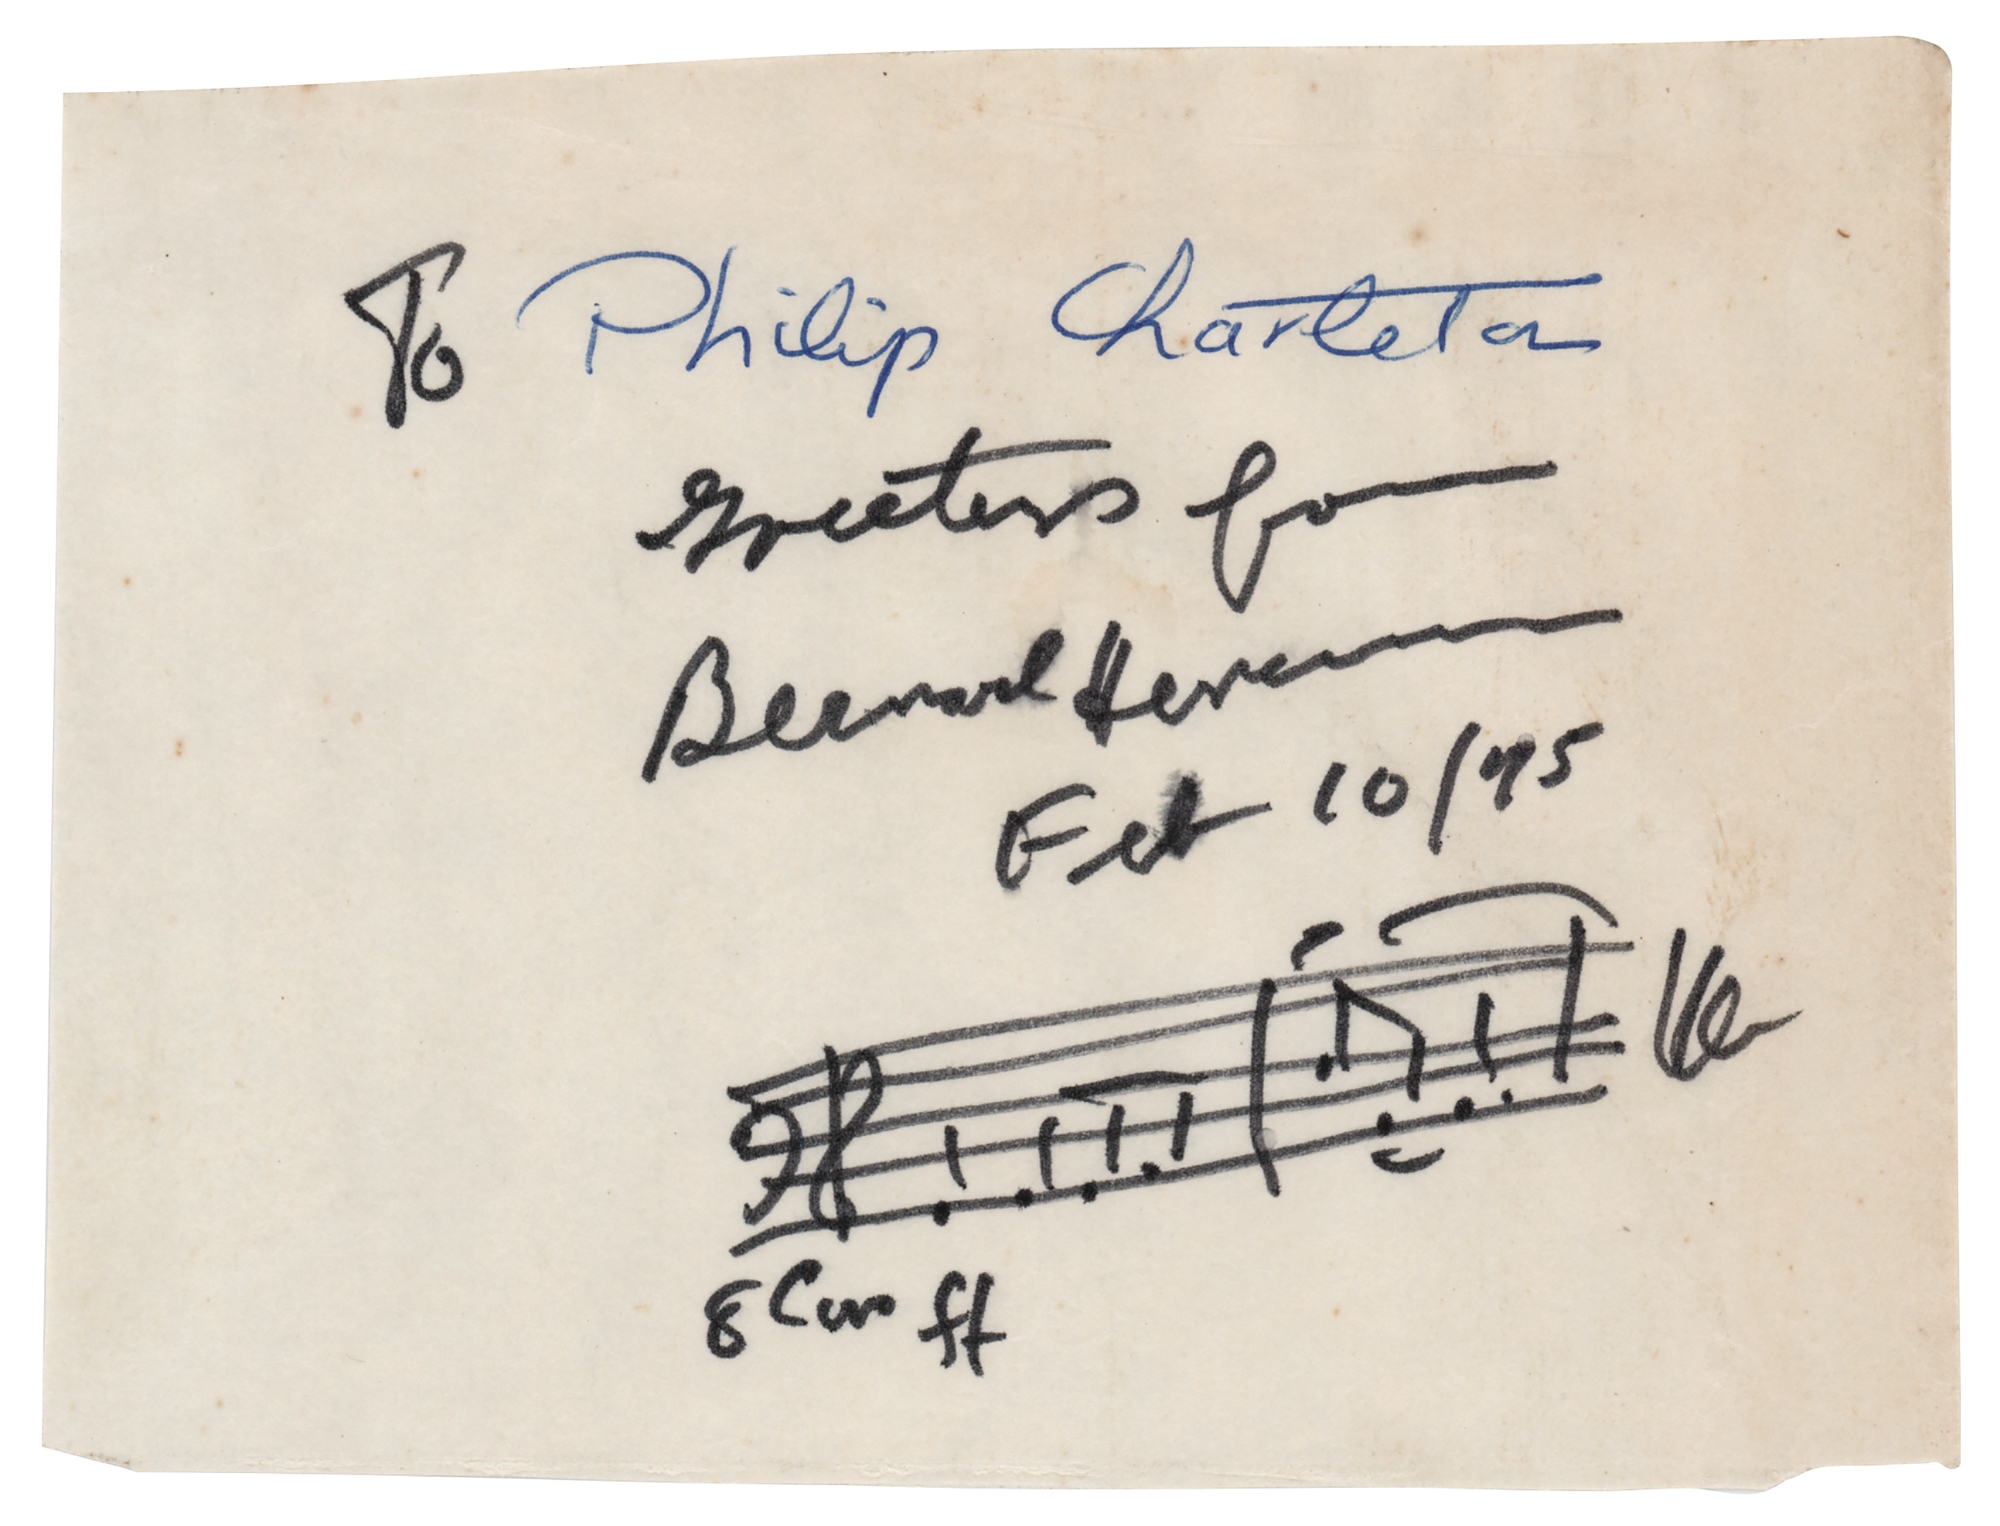 To Philip Charleton
Greetings from
Bernard Herrmann
Feb 10/75
8 Cors ff